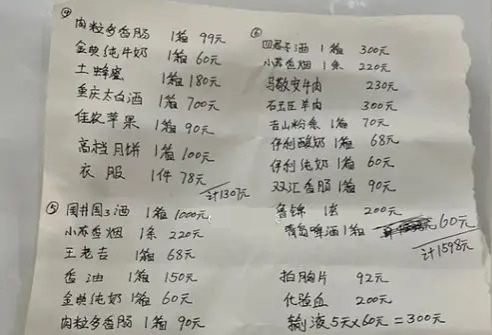 ④
肉粒多香肠 1箱 99元
金典纯牛奶 1箱 60元
土蜂蜜 1箱 180元
重庆太白酒 1箱 700元
佳致苹果 1箱 90元
高档月饼 1箱 100元
衣服 1件 78元
计1307元
⑤ 国井国3酒 1箱 1000元
小苏香烟 1条 220元
王老吉 1箱 68元
香油 1箱 150元
金典纯奶 1箱 60元
肉粒多香肠 1箱 90元
⑥
四君子酒 1箱 300元
小苏香烟 1条 220元
马敬安牛肉 230元
石玉臣羊肉 300元
吉山粉条 1箱 70元
伊利酸奶 1箱 68元
伊利纯奶 1箱 60元
双汇香肠 1箱 90元
鲁锦 1套 200元
青岛啤酒 1箱 60元
计1598元
拍胸片 92元
化验血 200元
输液5天×60元=300元